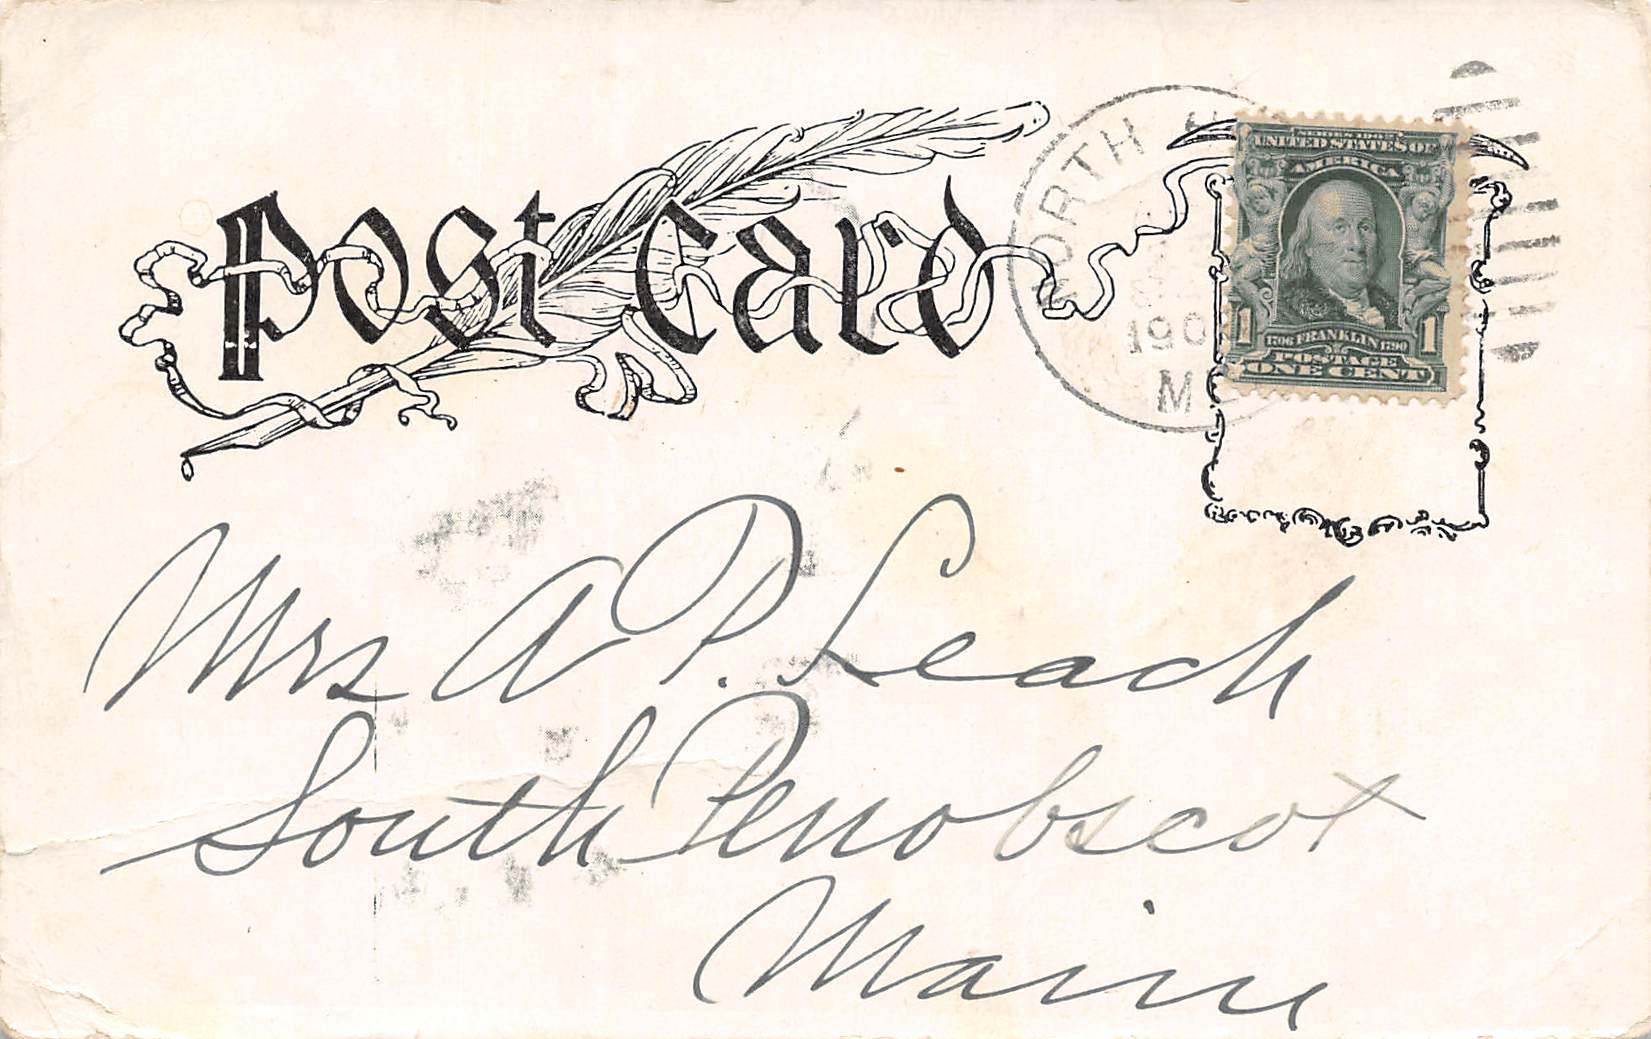 Post Card
NORTH
190
M
SERIES 1902
UNITED STATES OF
AMERICA
1 1706 FRANKLIN 1790 1
POSTAGE
ONE CENT
Mrs A. P. Leach
South Penobscot
Maine